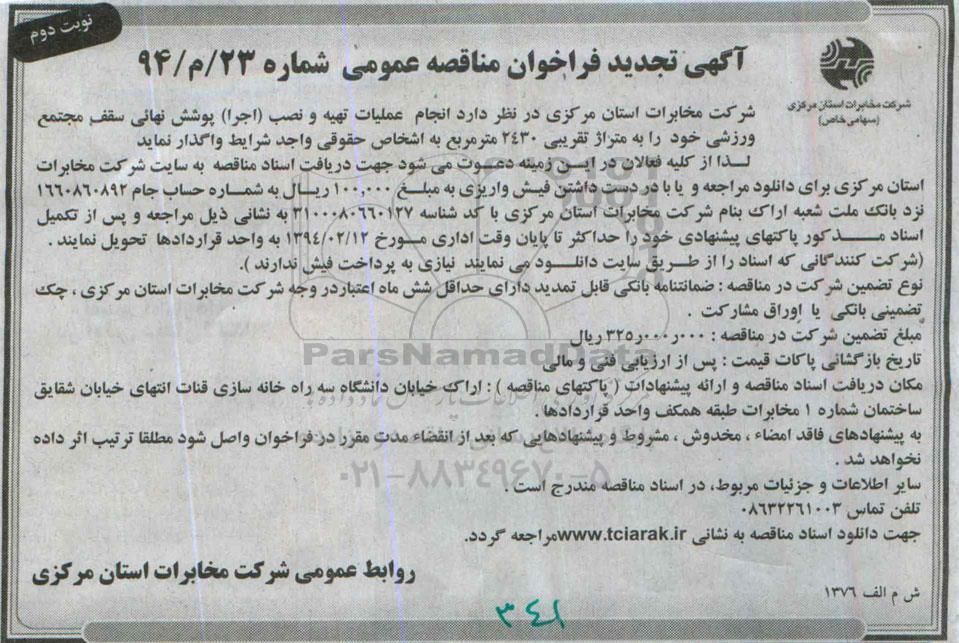 نوبت دوم
آگهی تجدید فراخوان مناقصه عمومی شماره ۲۳/م/۹۴
شرکت مخابرات استان مرکزی
(سهامی خاص)
شرکت مخابرات استان مرکزی در نظر دارد انجام عملیات تهیه و نصب (اجرا) پوشش نهائی سقف مجتمع
ورزشی خود را به متراژ تقریبی ۲۴۳۰ مترمربع به اشخاص حقوقی واجد شرایط واگذار نماید
لذا از کلیه فعالان در این زمینه دعوت می شود جهت دریافت اسناد مناقصه به سایت شرکت مخابرات
استان مرکزی برای دانلود مراجعه و یا با در دست داشتن فیش واریزی به مبلغ ۱۰۰,۰۰۰ ریال به شماره حساب جام ۱۶۶۰۸۶۰۸۹۲
نزد بانک ملت شعبه اراک بنام شرکت مخابرات استان مرکزی با کد شناسه ۳۱۰۰۰۸۰۶۶۰۱۲۷ به نشانی ذیل مراجعه و پس از تکمیل
اسناد مذکور پاکتهای پیشنهادی خود را حداکثر تا پایان وقت اداری مورخ ۱۳۹۴/۰۲/۱۲ به واحد قراردادها تحویل نمایند .
(شرکت کنندگانی که اسناد را از طریق سایت دانلود می نمایند نیازی به پرداخت فیش ندارند ).
نوع تضمین شرکت در مناقصه : ضمانتنامه بانکی قابل تمدید دارای حداقل شش ماه اعتباردر وجه شرکت مخابرات استان مرکزی ، چک
تضمینی بانکی یا اوراق مشارکت .
مبلغ تضمین شرکت در مناقصه : ۳۲۵ر۰۰۰ر۰۰۰ ریال
تاریخ بازگشائی پاکات قیمت : پس از ارزیابی فنی و مالی
مکان دریافت اسناد مناقصه و ارائه پیشنهادات ( پاکتهای مناقصه ) : اراک خیابان دانشگاه سه راه خانه سازی قنات انتهای خیابان شقایق
ساختمان شماره ۱ مخابرات طبقه همکف واحد قراردادها .
به پیشنهادهای فاقد امضاء ، مخدوش ، مشروط و پیشنهادهایی که بعد از انقضاء مدت مقرر در فراخوان واصل شود مطلقا ترتیب اثر داده
نخواهد شد .
سایر اطلاعات و جزئیات مربوط، در اسناد مناقصه مندرج است .
تلفن تماس ۰۸۶۳۲۲۶۱۰۰۳
جهت دانلود اسناد مناقصه به نشانی www.tciarak.irمراجعه گردد.
روابط عمومی شرکت مخابرات استان مرکزی
ش م الف ۱۳۷۶
۳۴۱
ParsNamadData
۰۲۱-۸۸۳۴۹۶۷۰-۵